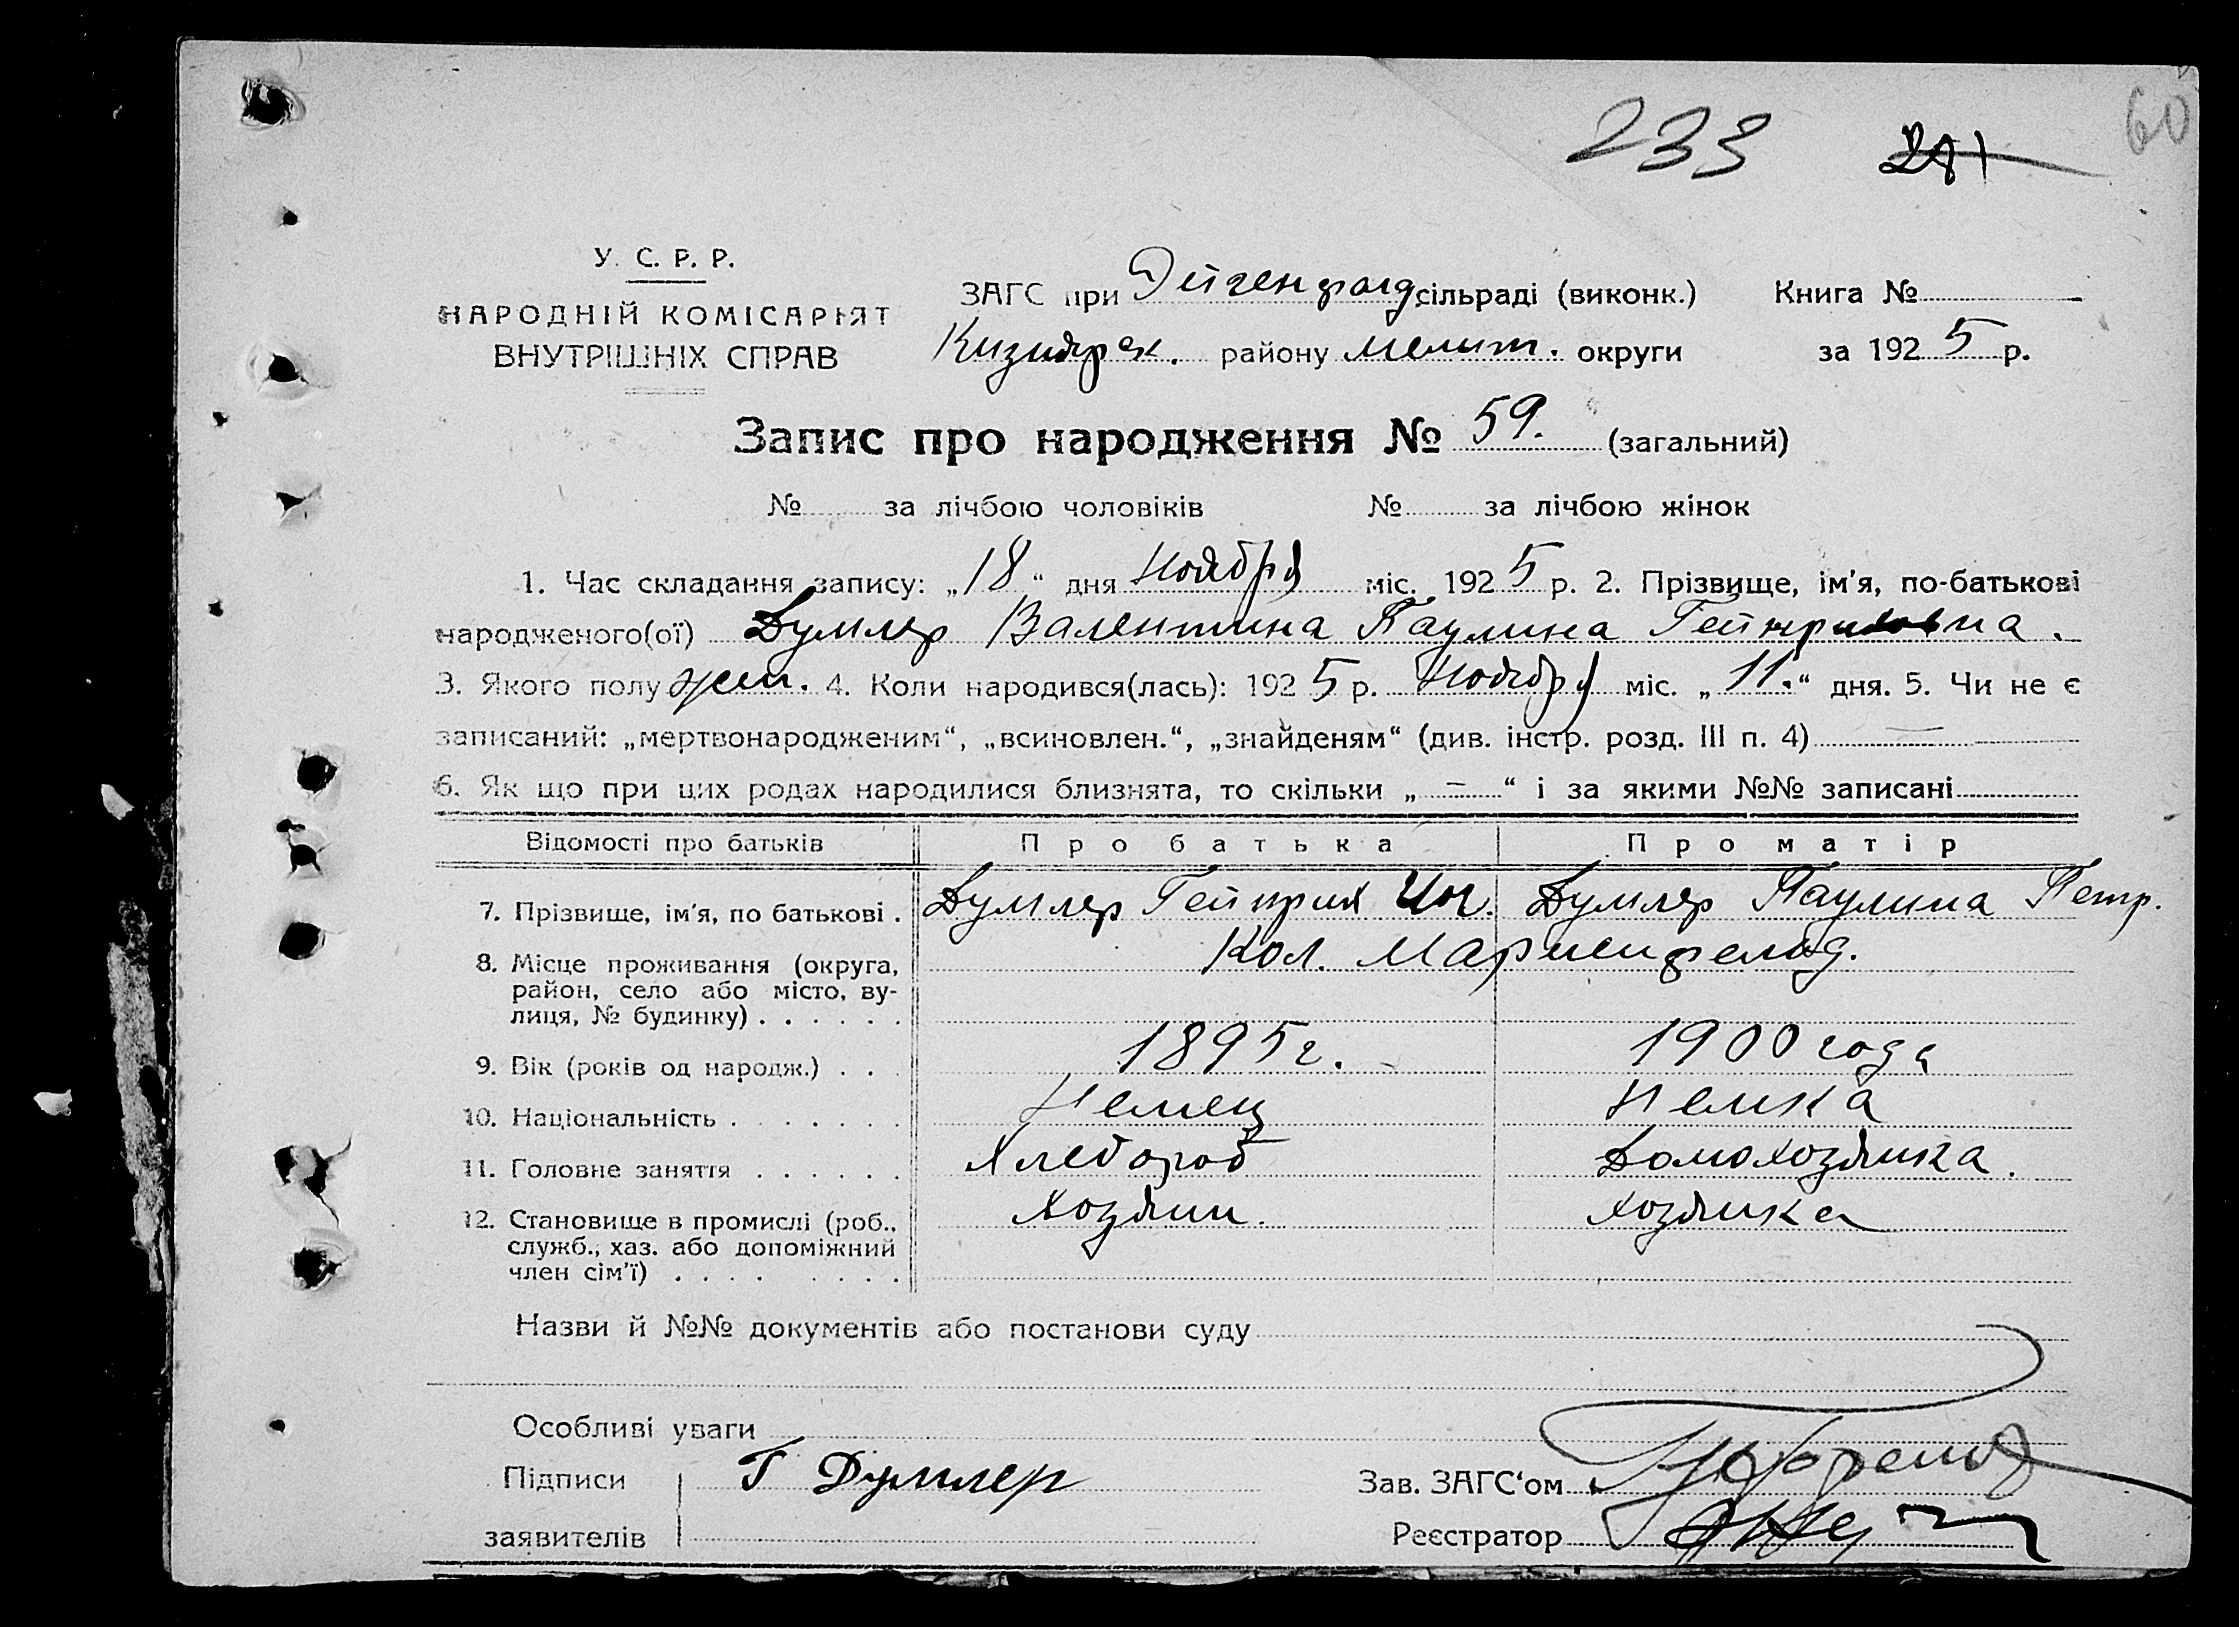 60
233
У. С. Р. Р.
НАРОДНІЙ КОМІСАРІЯТ
ВНУТРІШНІХ СПРАВ
ЗАГС при Эйгенфельд сільраді (виконк.) Книга №
района Мелит. округи за 1925 р.
Запис про народження № 59. (загальний)
№ за лічбою чоловіків № за лічбою жінок
1. Час складання запису: „18“ дня Ноября міс. 1925 р. 2. Прізвище, ім'я, по-батькові
народженого(ої) Думлер Валентина Паулина Гейнриховна.
3. Якого полу жен. 4. Коли народився(лась): 1925 р. Ноября міс. „11.“ дня. 5. Чи не є
записаний: „мертвонародженим“, „всиновлен.“, „знайденям“ (див. інстр. розд. III п. 4) —
6. Як що при цих родах народилися близнята, то скільки „ — “ і за якими №№ записані
Відомості про батьків Про батька Про матір
7. Прізвище, ім'я, по батькові . Думлер Гейнрих Думлер Паулина Петр.
8. Місце проживання (округа, Кол. Мариенфельд.
район, село або місто, ву-
лиця, № будинку) . . . . . .
9. Вік (років од народж.) . . . 1895 г. 1900 года
10. Національність . . . . . . . Немец Немка
11. Головне заняття . . . . . . Хлебороб Домохозяйка.
12. Становище в промислі (роб., Хозяин. Хозяйка
служб., хаз. або допоміжний
член сім'ї) . . . . . . . .
Назви й №№ документів або постанови суду
Особливі уваги
Підписи Г Думлер Зав. ЗАГС'ом
заявителів Реєстратор